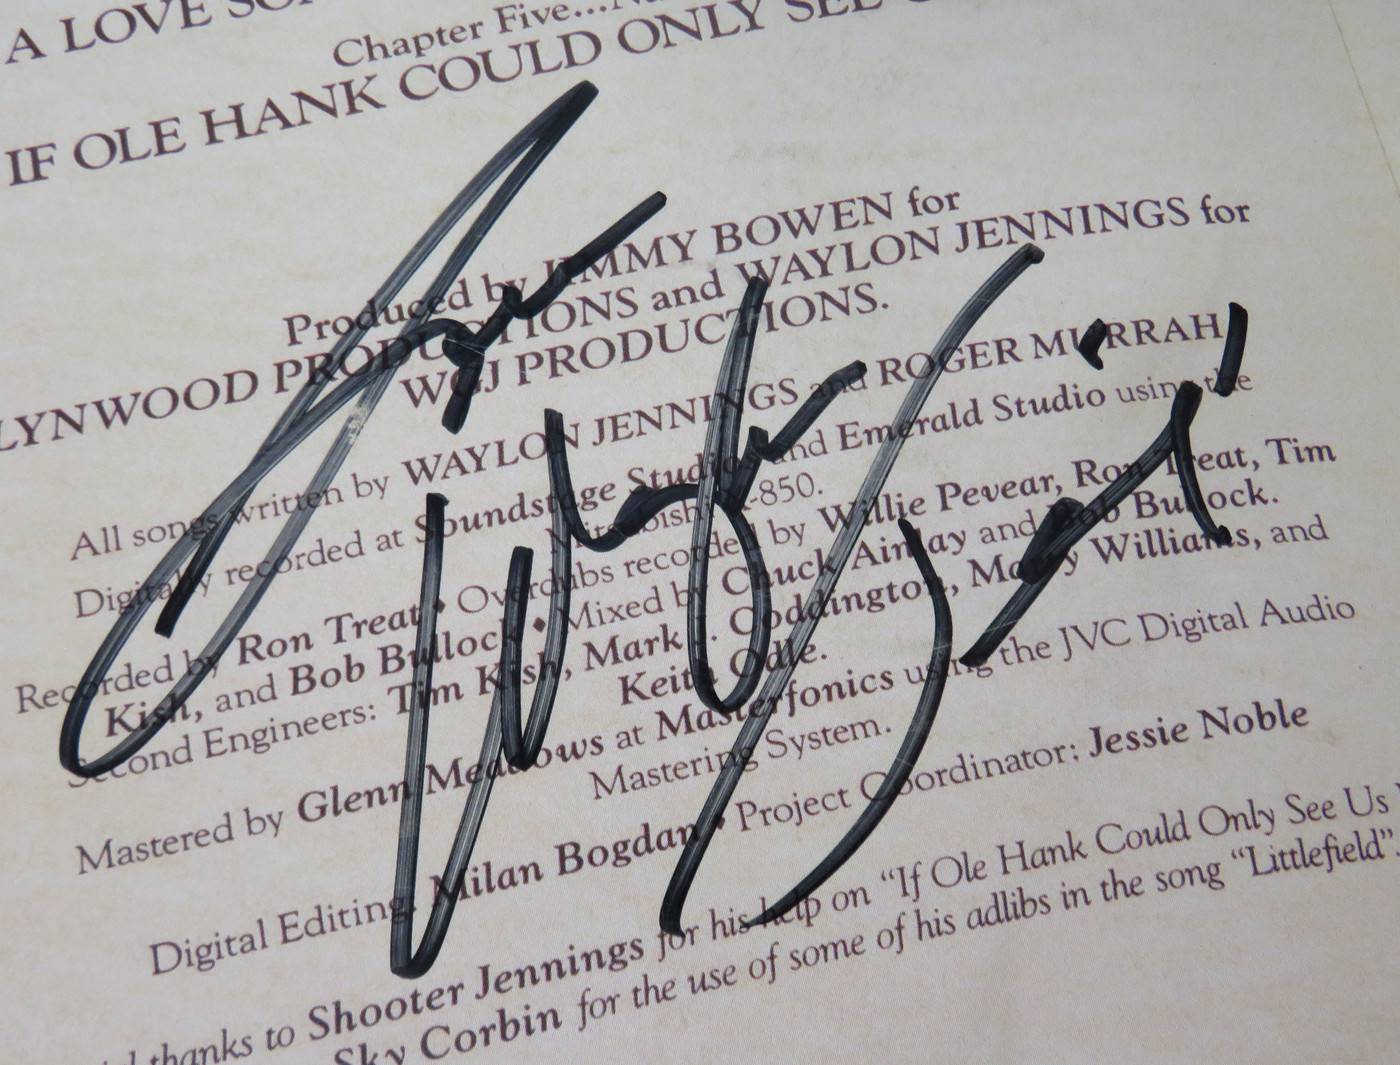 A LOVE SO
Chapter Five...
IF OLE HANK COULD ONLY SEE
Produced by JIMMY BOWEN for
LYNWOOD PRODUCTIONS and WAYLON JENNINGS for
WGJ PRODUCTIONS.
All songs written by WAYLON JENNINGS and ROGER MURRAH
Digitally recorded at Soundstage Studio and Emerald Studio using the
Mitsubishi X-850.
Recorded by Ron Treat • Overdubs recorded by Willie Pevear, Ron Treat, Tim
Kish, and Bob Bullock • Mixed by Chuck Ainlay and Bob Bullock.
Second Engineers: Tim Kish, Mark J. Coddington, Marty Williams, and
Keith Odle.
Mastered by Glenn Meadows at Masterfonics using the JVC Digital Audio
Mastering System.
Digital Editing: Milan Bogdan • Project Coordinator: Jessie Noble
thanks to Shooter Jennings for his help on “If Ole Hank Could Only See Us
Sky Corbin for the use of some of his adlibs in the song “Littlefield”.